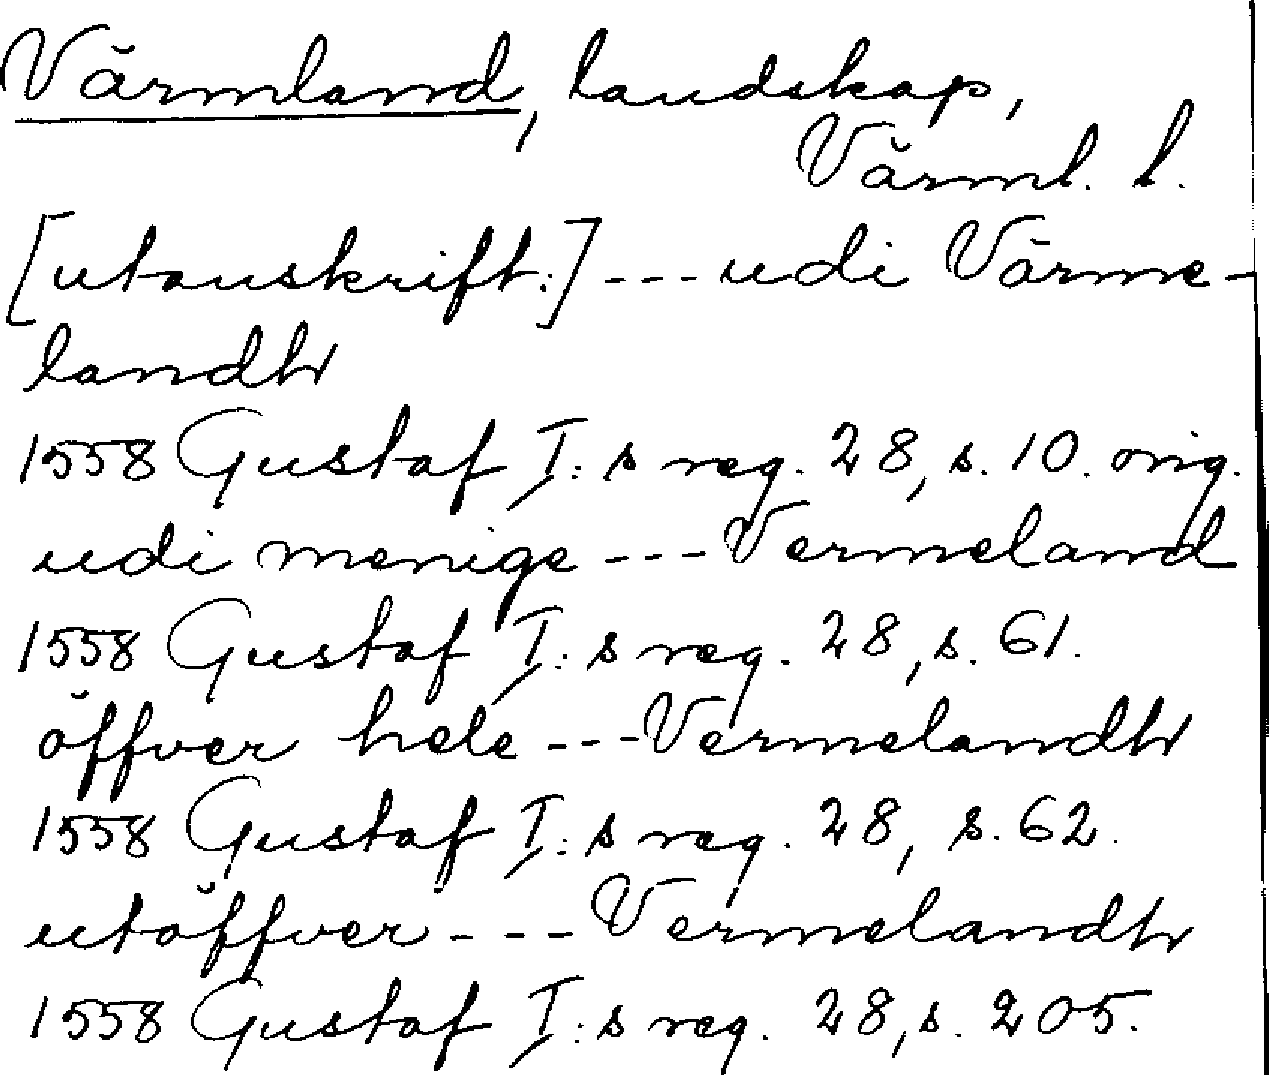 Värmland, landskap,
Värml. l.
[utanskrift:] --- udi Värme-
landh
1558 Gustaf I:s reg. 28, s. 10. orig.
udi menige --- Vermeland
1558 Gustaf I:s reg. 28, s. 61.
öffver hele --- Vermelandh
1558 Gustaf I:s reg. 28, s. 62.
utöffver --- Vermelandh
1558 Gustaf I:s reg. 28, s. 205.